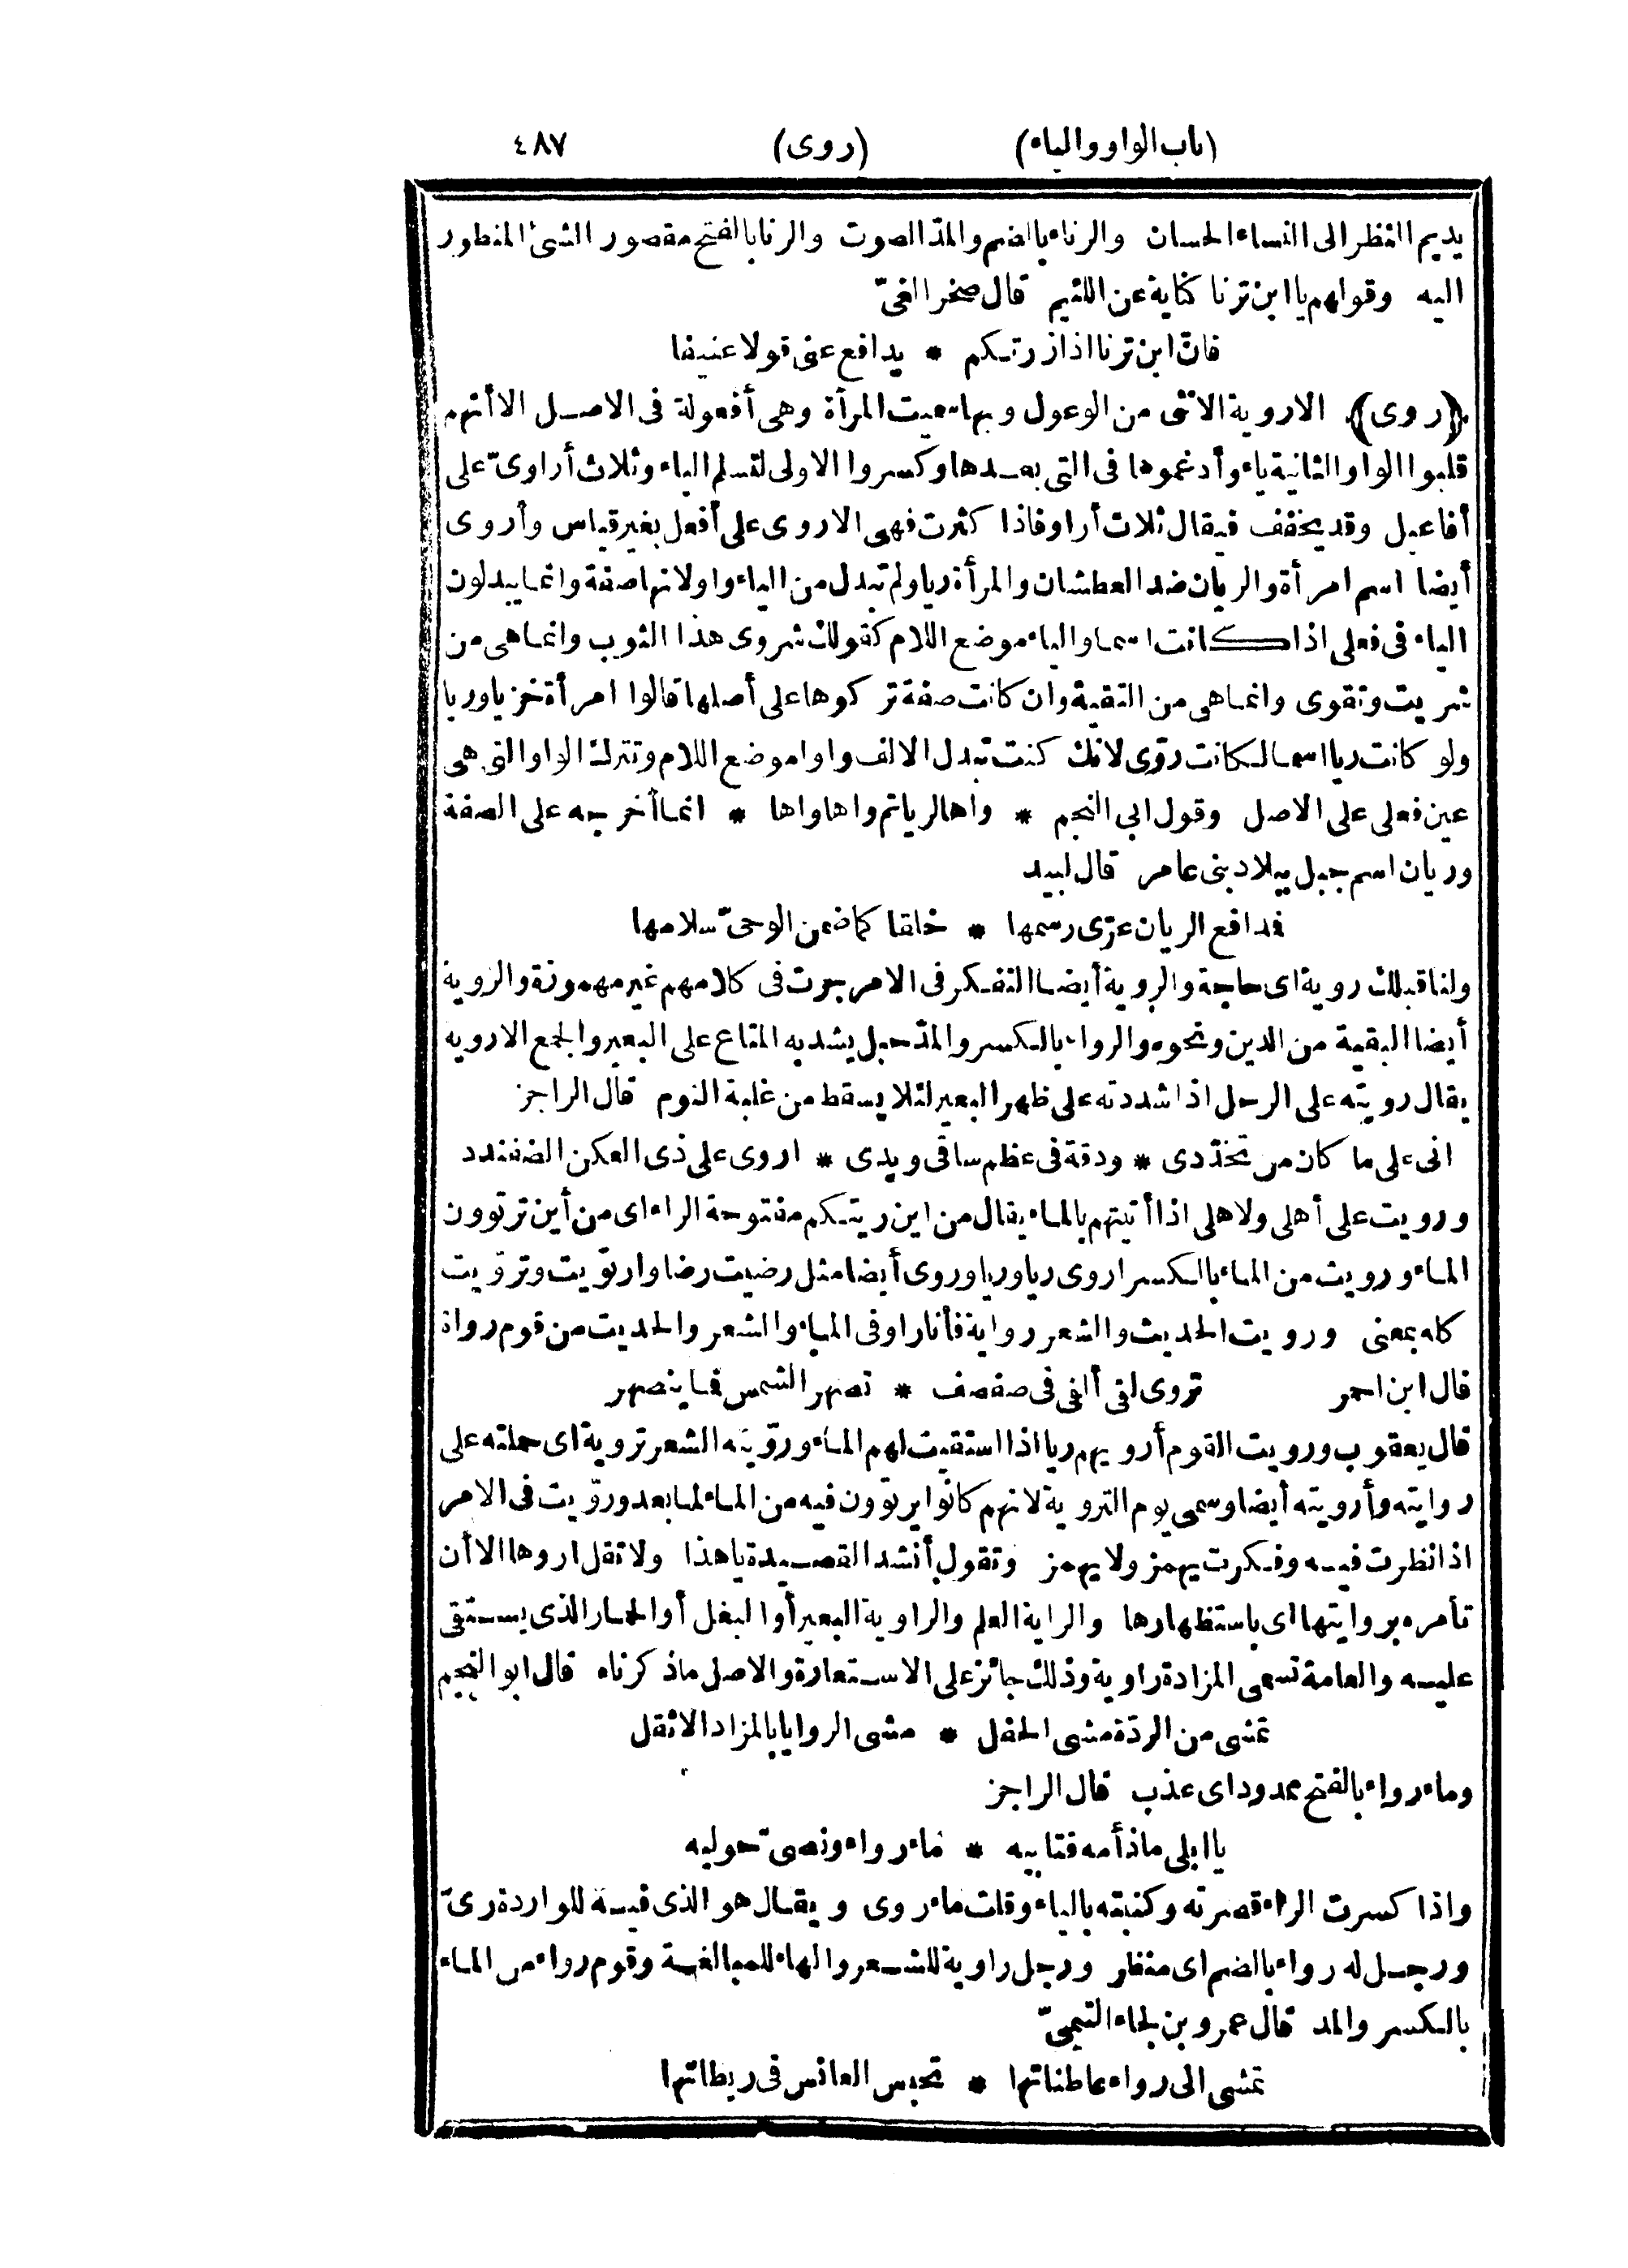 (باب الواو والياء) (روى) ٤٨٧
يديم النظر الى النساء الحسان والرناء بالضم والمدّ الصوت والرنا بالفتح مقصور الشئ المنظور
اليه وقولهم يا ابن ترنا كناية عن اللئيم قال صخر الغىّ
فانّ ابن ترنا اذا زرتكم * يدافع عنى قولا عنيفا
﴿روى﴾ الاروية الانثى من الوعول وبها سميت المرأة وهى أفعولة فى الاصل الا أنهم
قلبوا الواو الثانية ياء وأدغموها فى التى بعدها وكسروا الاولى لتسلم الياء وثلاث أراوىّ على
أفاعيل وقد يخفف فيقال ثلاث أراو فاذا كثرت فهى الاروى على أفعل بغير قياس وأروى
أيضا اسم امرأة والريان ضد العطشان والمرأة ريا ولم تبدل من الياء واو لانها صفة وانما يبدلون
الياء فى فعلى اذا كانت اسما والياء موضع اللام كقولك شروى هذا الثوب وانما هى من
شريت وتقوى وانما هى من التقية وان كانت صفة تركوها على أصلها قالوا امرأة خزيا وريا
ولو كانت ريا اسما لكانت روّى لانك كنت تبدل الالف واوا موضع اللام وتترك الواو التى هى
عين فعلى على الاصل وقول ابى النجم * واها لريا ثم واها واها * انما أخرجه على الصفة
وريان اسم جبل ببلاد بنى عامر قال لبيد
فدافع الريان عرّى رسمها * خلقا كما ضمن الوحىّ سلامها
ولنا قبلك روية اى حاجة والروية أيضا التفكر فى الامر جرت فى كلامهم غير مهموزة والروية
أيضا البقية من الدين ونحوه والرواء بالكسر والمدّ حبل يشد به المتاع على البعير والجمع الاروية
يقال رويته على الرحل اذا شددته على ظهر البعير لئلا يسقط من غلبة النوم قال الراجز
انى على ما كان من تخدّدى * ودقة فى عظم ساقى ويدى * اروى على ذى العكن الضفندد
ورويت على أهلى ولاهلى اذا أتيتهم بالماء يقال من اين ريتكم مفتوحة الراء اى من أين ترتوون
الماء ورويت من الماء بالكسر اروى ريا وريا وروى أيضا مثل رضيت رضا وارتويت وتروّيت
كله بمعنى ورويت الحديث والشعر رواية فأنا راو فى الماء والشعر والحديث من قوم رواة
قال ابن احمر تروى لقى ألقى فى صفصف * تصهر الشمس فما ينصهر
قال يعقوب ورويت القوم أرويهم ريا اذا استقيت لهم الماء وروّيته الشعر تروية اى حملته على
روايته وأرويته أيضا وسمى يوم التروية لانهم كانوا يرتوون فيه من الماء لما بعد وروّيت فى الامر
اذا نظرت فيه وفكرت يهمز ولا يهمز وتقول أنشد القصيدة يا هذا ولا تقل اروها الا أن
تأمره بروايتها اى باستظهارها والراية العلم والراوية البعير أو البغل أو الحمار الذى يستقى
عليه والعامة تسمى المزادة راوية وذلك جائز على الاستعارة والاصل ما ذكرناه قال ابو النجم
تمشى من الردّة مشى الحفل * مشى الروايا بالمزاد الاثقل
وماء رواء بالفتح ممدود اى عذب قال الراجز
يا ابلى ماذأمه فتابيه * ماء رواء ونصىّ حوليه
واذا كسرت الراء قصرته وكتبته بالياء وقلت ماء روى ويقال هو الذى فيه للواردة رىّ
ورجل له رواء بالضم اى منظر ورجل راوية للشعر والهاء للمبالغة وقوم رواء من الماء
بالكسر والمد قال عمرو بن لجاء التيمىّ
تمشى الى رواء عاطناتها * تحبس العانس فى ريطاتها